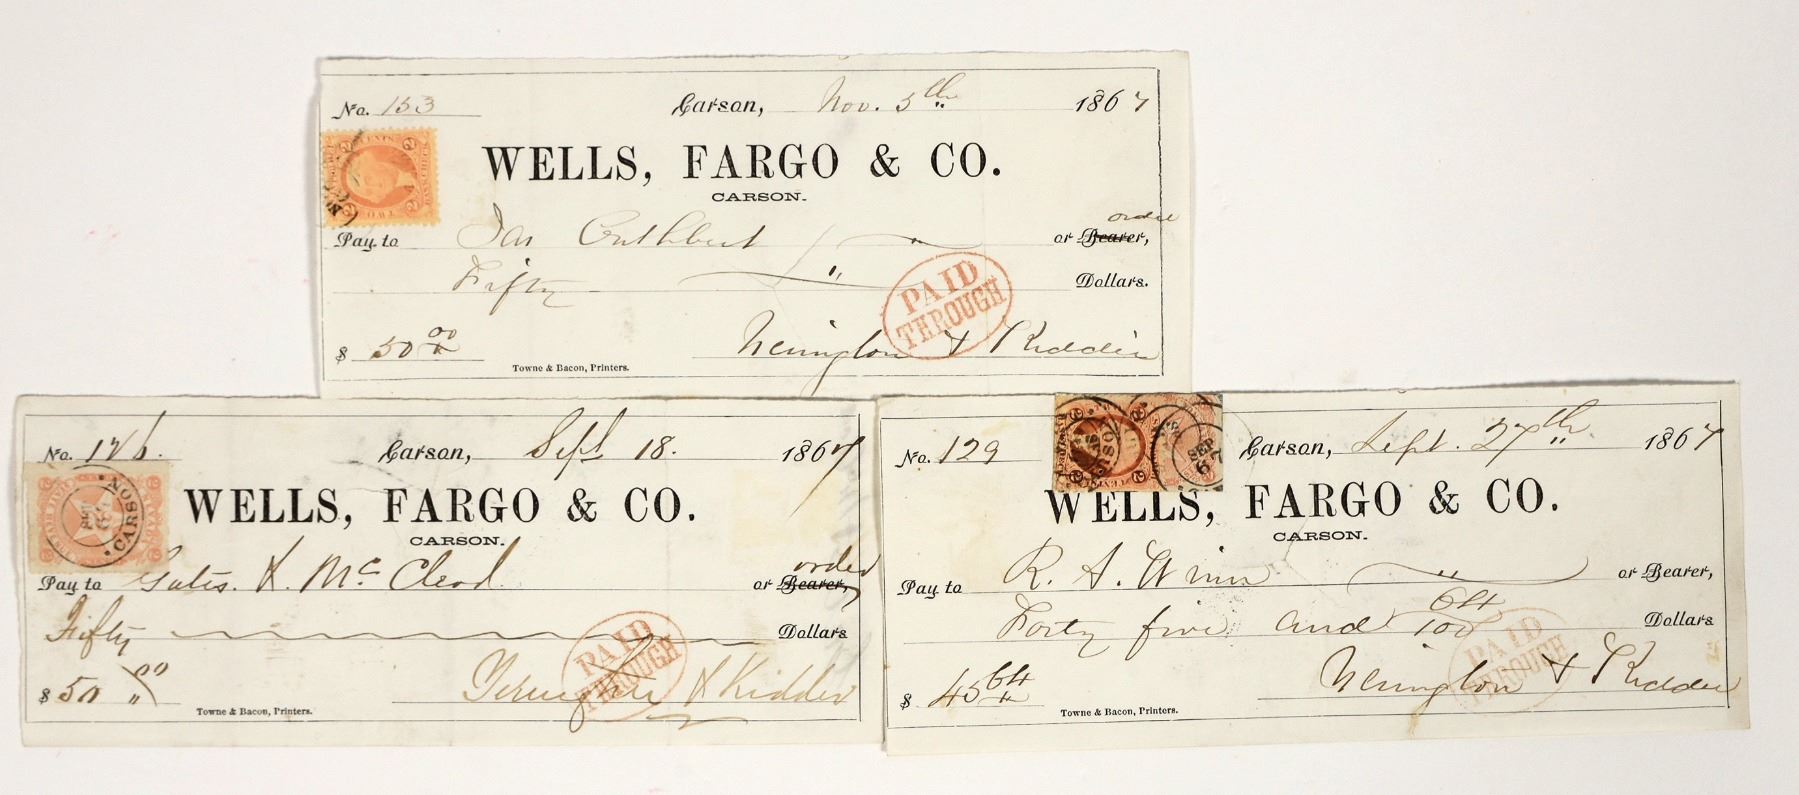 No. 153 Carson, Nov. 5th 1867
WELLS, FARGO & CO.
CARSON.
order
Pay to Jas Cuthbert or Bearer,
Fifty Dollars.
PAID
THROUGH
$ 50 00
Towne & Bacon, Printers.
& Kidder
TWO CENTS
No. 126. Carson, Sept 18. 1867
WELLS, FARGO & CO.
CARSON.
CARSON
order
Pay to Gates. & McCleod. or Bearer,
Fifty Dollars
PAID
THROUGH
$ 50 00
& Kidder
Towne & Bacon, Printers.
No. 129 Carson, Sept. 27th 1867
SEP
67
WELLS, FARGO & CO.
CARSON.
Pay to R. S. Winn or Bearer,
Forty five and 64/100 Dollars
PAID
THROUGH
$ 45 64
& Kidder
Towne & Bacon, Printers.